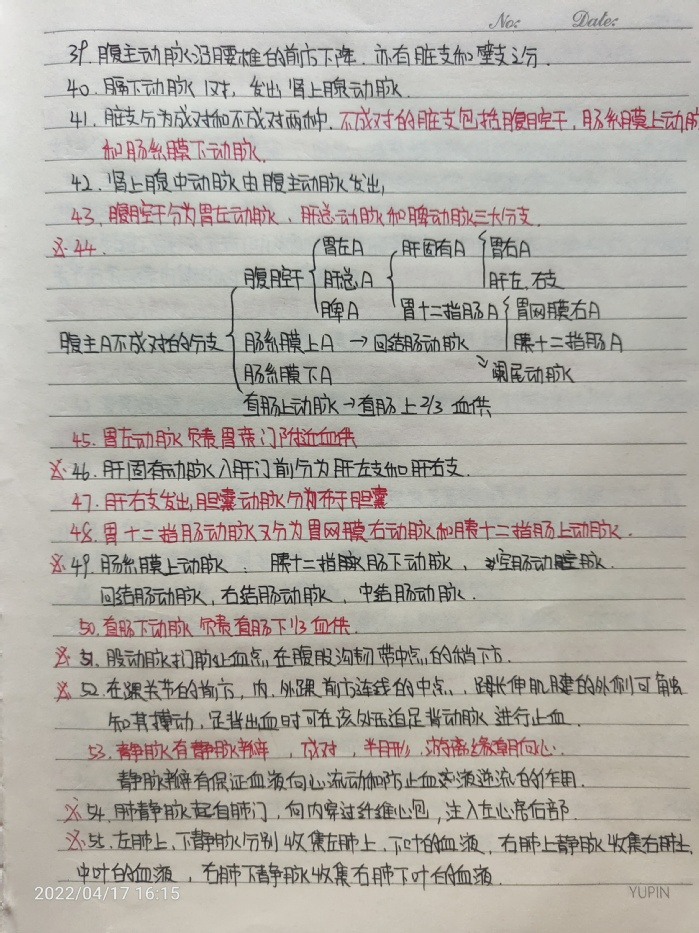 No: Date:
39. 腹主动脉沿腰椎的前方下降. 亦有脏支和壁支之分.
40. 膈下动脉 1对, 发出肾上腺动脉.
41. 脏支分为成对和不成对两种. 不成对的脏支包括腹腔干, 肠系膜上动脉
和肠系膜下动脉.
42. 肾上腺中动脉由腹主动脉发出,
43. 腹腔干分为胃左动脉、肝总动脉和脾动脉三大分支.
※44.
胃左A 肝固有A 胃右A
腹腔干 肝总A 肝左, 右支
脾A 胃十二指肠A 胃网膜右A
腹主A不成对的分支 肠系膜上A → 回结肠动脉 胰十二指肠A
肠系膜下A 阑尾动脉
直肠上动脉→直肠上2/3 血供
45. 胃左动脉负责胃贲门附近血供
※46. 肝固有动脉入肝门前分为肝左支和肝右支.
47. 肝右支发出胆囊动脉分布于胆囊
48. 胃十二指肠动脉又分为胃网膜右动脉和胰十二指肠上动脉.
※49. 肠系膜上动脉: 胰十二指肠下动脉, 空肠动脉.
回结肠动脉, 右结肠动脉、中结肠动脉.
50. 直肠下动脉负责直肠下1/3血供.
※51. 股动脉扪脉止血点, 在腹股沟韧带中点的稍下方.
※52. 在踝关节的前方, 内、外踝前方连线的中点、𧿹长伸肌腱的外侧可触
知其搏动, 足背出血时可在该处压迫足背动脉进行止血.
53. 静脉有静脉瓣, 成对, 半月形, 游离缘朝向心.
静脉瓣有保证血液向心流动和防止血液逆流的作用.
※54. 肺静脉起自肺门, 向内穿过纤维心包, 注入左心房后部.
※55. 左肺上、下静脉分别收集左肺上、下叶的血液, 右肺上静脉收集右肺上.
中叶的血液, 右肺下静脉收集右肺下叶的血液.
2022/04/17 16:15
YUPIN